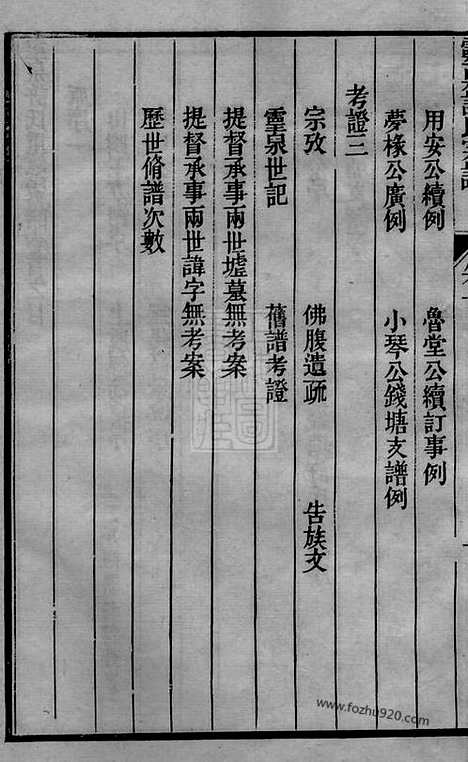 用安公續例　魯堂公續訂事例
夢椽公廣例　小琴公錢塘支譜例
考證三
宗攷　佛腹遺疏　告族文
靈泉世記　舊譜考證
提督承事兩世墟墓無考案
提督承事兩世諱字無考案
歷世脩譜次數
www.fozhu920.com